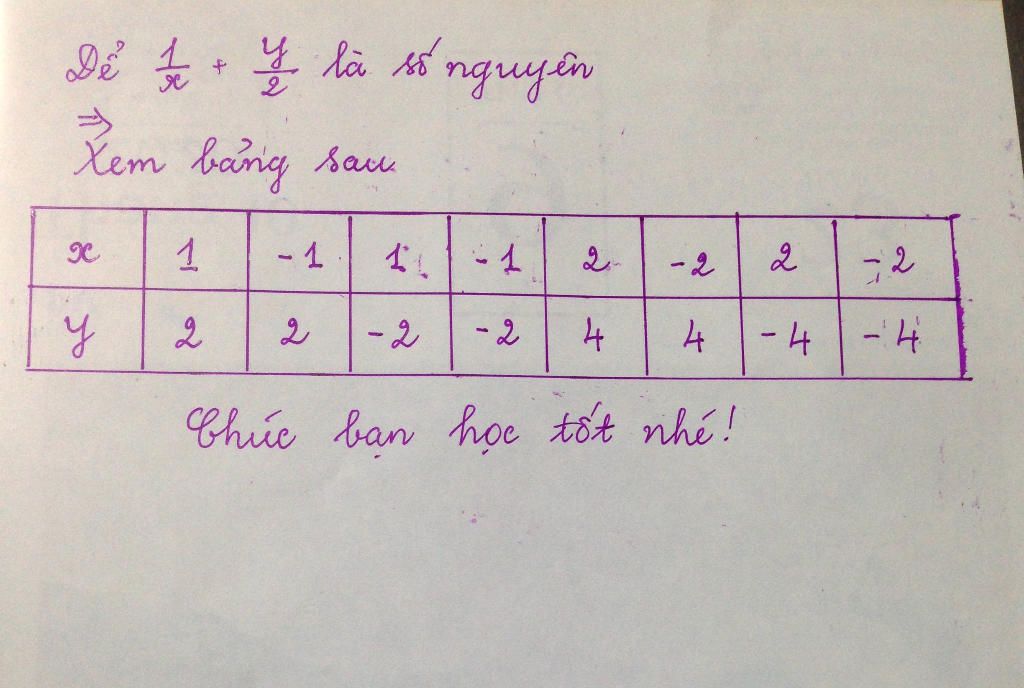 Để 1/x + y/2 là số nguyên
⇒
Xem bảng sau
x 1 -1 1 -1 2 -2 2 -2
y 2 2 -2 -2 4 4 -4 -4
Chúc bạn học tốt nhé!